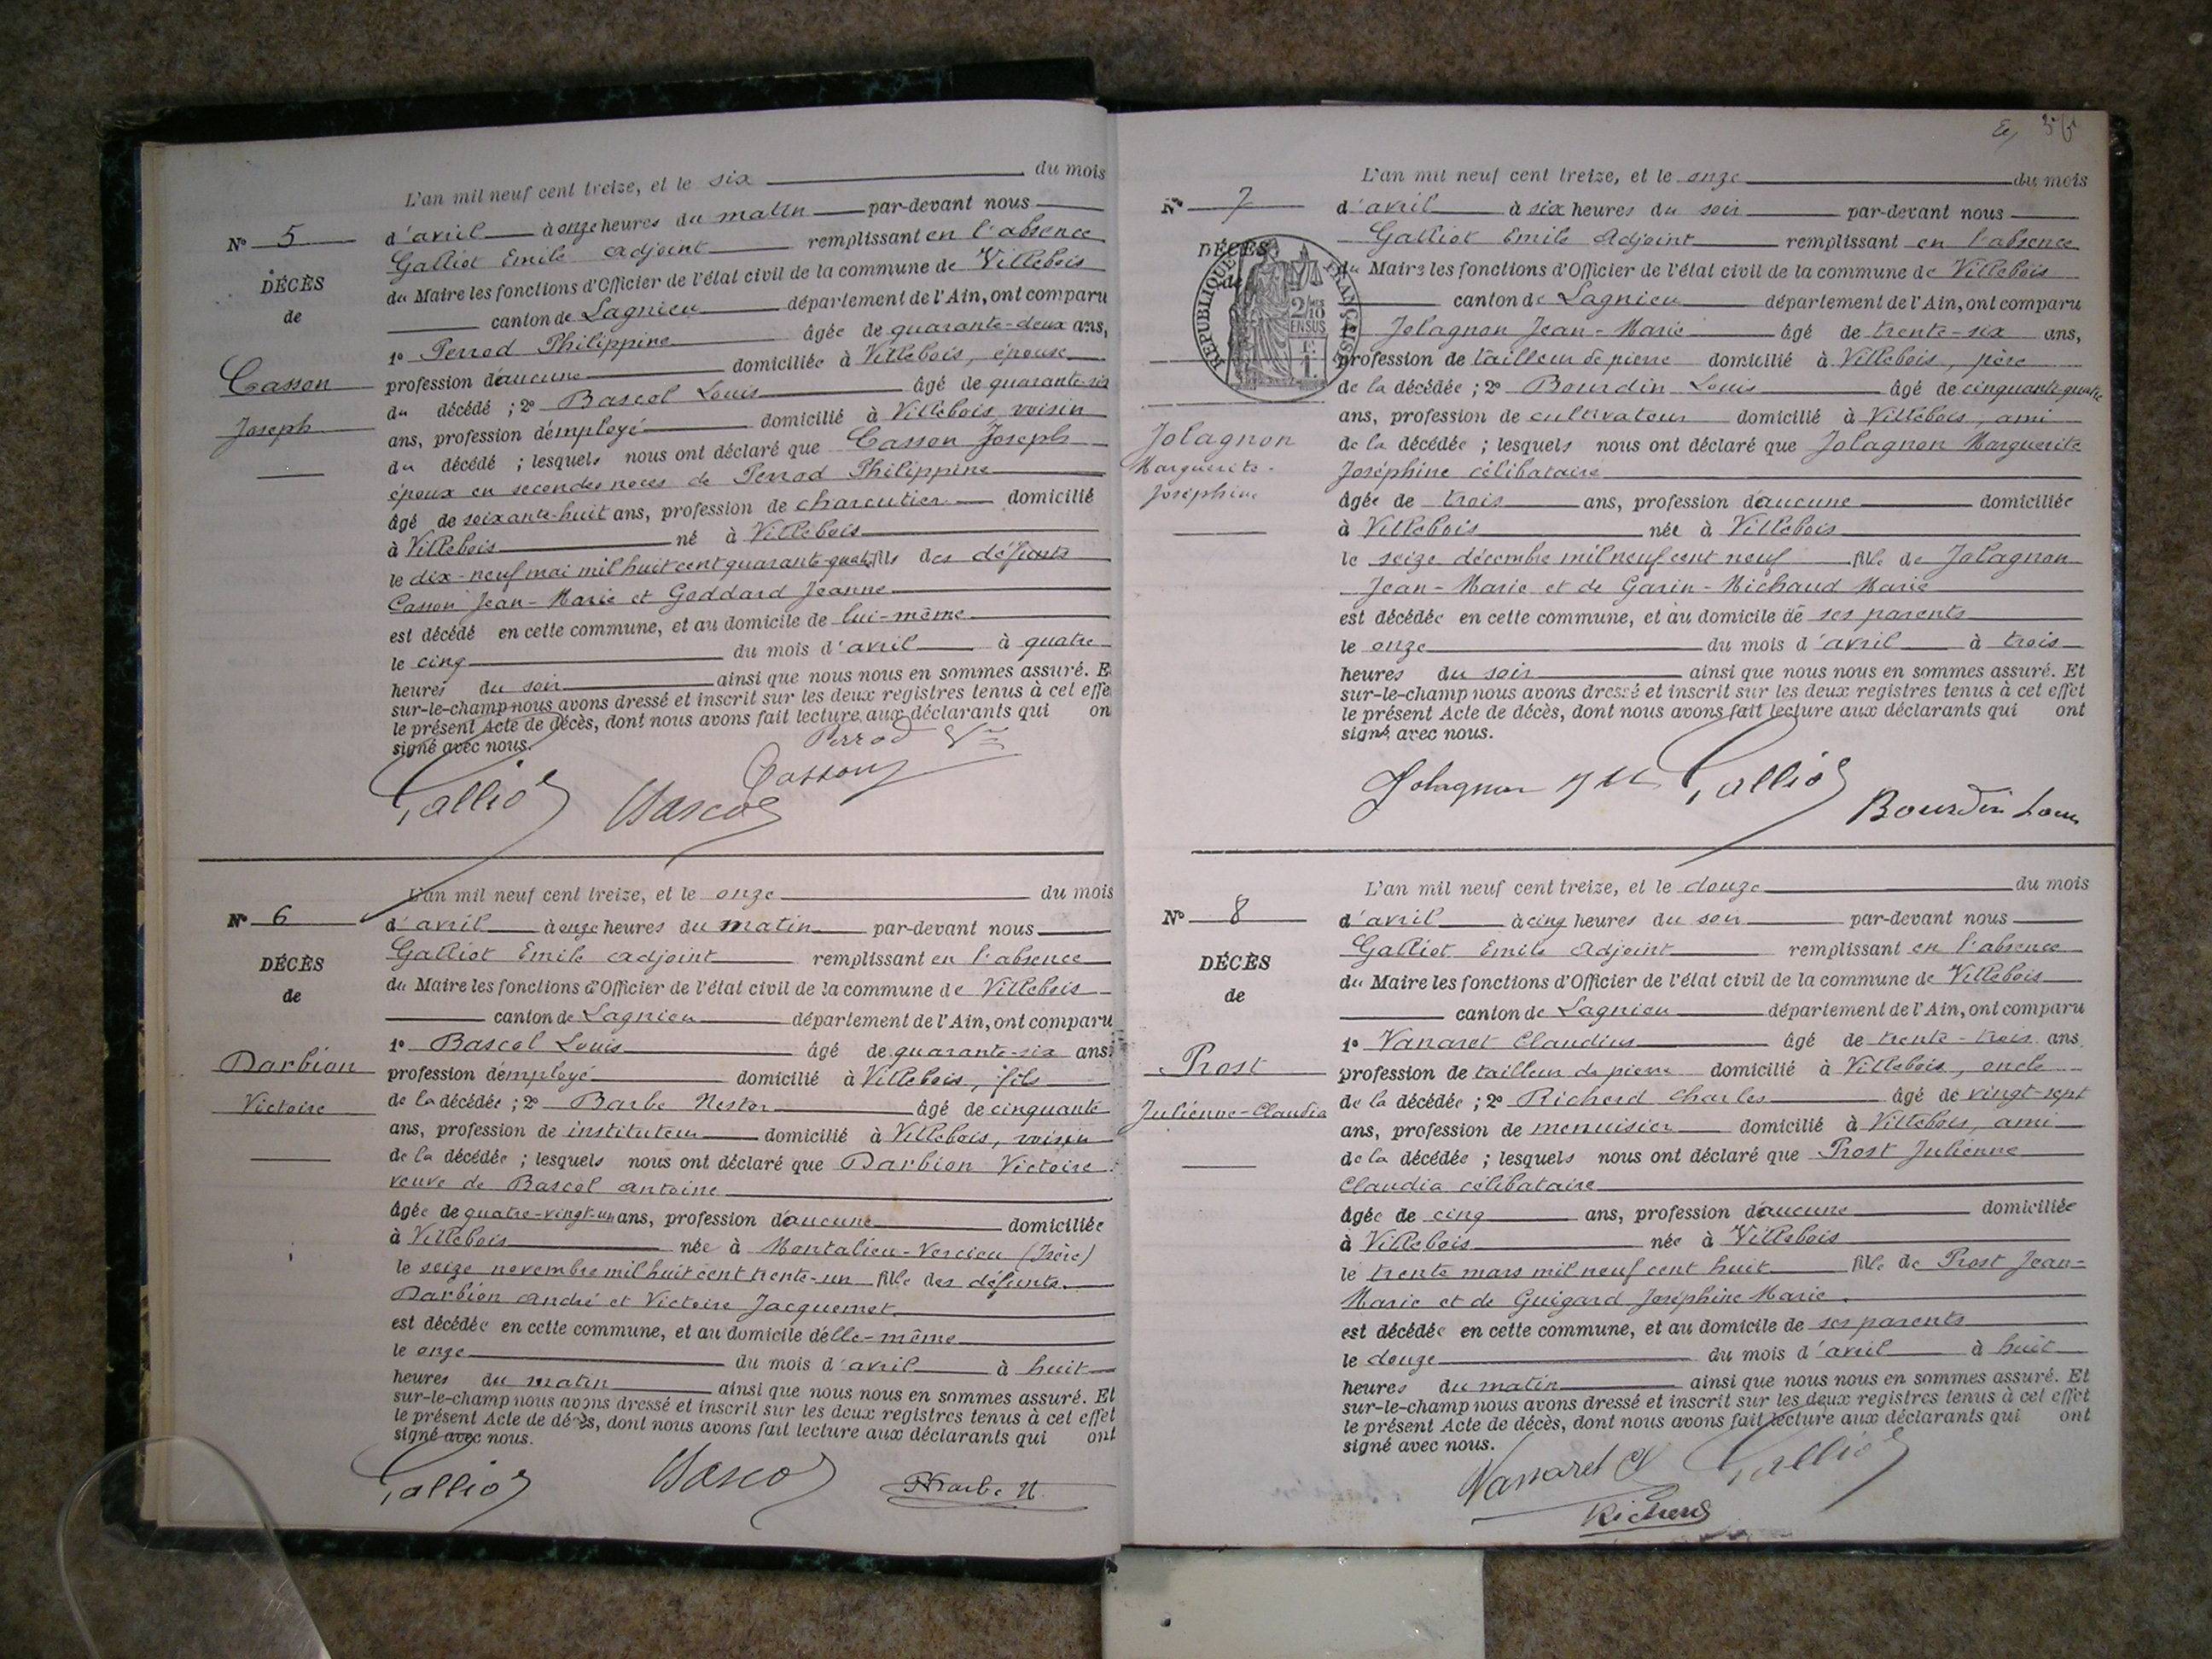 L'an mil neuf cent treize, et le six du mois
N° 5
d'avril à onze heures du matin par-devant nous
Galliot Emile adjoint remplissant en l'absence
DÉCÈS
du Maire les fonctions d'Officier de l'état civil de la commune de Villebois
de
canton de Lagnieu département de l'Ain, ont comparu
1° Perrod Philippine âgée de quarante-deux ans,
Casson
profession d'aucune domiciliée à Villebois, épouse
du décédé ; 2° Bascol Louis âgé de quarante-six
Joseph
ans, profession d'employé domicilié à Villebois voisin
du décédé ; lesquels nous ont déclaré que Casson Joseph
époux en secondes noces de Perrod Philippine
âgé de soixante-huit ans, profession de charcutier domicilié
à Villebois né à Villebois
le dix-neuf mai mil huit cent quarante-quatre fils des défunts
Casson Jean-Marie et Goddard Jeanne
est décédé en cette commune, et au domicile de lui-même
le cinq du mois d'avril à quatre
heures du soir ainsi que nous nous en sommes assuré. E
sur-le-champ nous avons dressé et inscrit sur les deux registres tenus à cet effe
le présent Acte de décès, dont nous avons fait lecture aux déclarants qui on
signé avec nous.
Perrod Vve
Casson
Galliot Bascol
L'an mil neuf cent treize, et le onze du mois
N° 6
d'avril à onze heures du matin par-devant nous
Galliot Emile adjoint remplissant en l'absence
DÉCÈS
du Maire les fonctions d'Officier de l'état civil de la commune de Villebois
de
canton de Lagnieu département de l'Ain, ont comparu
1° Bascol Louis âgé de quarante-six ans,
Darbion
profession d'employé domicilié à Villebois, fils
Victoire
de la décédée ; 2° Barbe Nestor âgé de cinquante
ans, profession de instituteur domicilié à Villebois, voisin
de la décédée ; lesquels nous ont déclaré que Darbion Victoire
veuve de Bascol antoine
âgée de quatre-vingt-un ans, profession d'aucune domiciliée
à Villebois née à Montalieu-Vercieu (Isère)
le seize novembre mil huit cent trente-un fille des défunts
Darbion andré et Victoire Jacquemet
est décédée en cette commune, et au domicile d'elle-même
le onze du mois d'avril à huit
heures du matin ainsi que nous nous en sommes assuré. Et
sur-le-champ nous avons dressé et inscrit sur les deux registres tenus à cet effet
le présent Acte de décès, dont nous avons fait lecture aux déclarants qui ont
signé avec nous.
Galliot Bascol Barbe N.
L'an mil neuf cent treize, et le onze du mois
N° 7
d'avril à six heures du soir par-devant nous
Galliot Emile Adjoint remplissant en l'absence
DÉCÈS
de
RÉPUBLIQUE FRANÇAISE
2/10 EN SUS
du Maire les fonctions d'Officier de l'état civil de la commune de Villebois
canton de Lagnieu département de l'Ain, ont comparu
Jolagnon Jean-Marie âgé de trente-six ans,
profession de tailleur de pierre domicilié à Villebois, père
de la décédée ; 2° Bourdin Louis âgé de cinquante-quatre
ans, profession de cultivateur domicilié à Villebois, ami
Jolagnon
de la décédée ; lesquels nous ont déclaré que Jolagnon Marguerite
Marguerite-
Joséphine célibataire
Joséphine
âgée de trois ans, profession d'aucune domiciliée
à Villebois née à Villebois
le seize décembre mil neuf cent neuf fille de Jolagnon
Jean-Marie et de Garin-Michaud Marie
est décédée en cette commune, et au domicile de ses parents
le onze du mois d'avril à trois
heures du soir ainsi que nous nous en sommes assuré. Et
sur-le-champ nous avons dressé et inscrit sur les deux registres tenus à cet effet
le présent Acte de décès, dont nous avons fait lecture aux déclarants qui ont
signé avec nous.
Jolagnon Galliot Bourdin Louis
L'an mil neuf cent treize, et le douze du mois
N° 8
d'avril à cinq heures du soir par-devant nous
Galliot Emile Adjoint remplissant en l'absence
DÉCÈS
du Maire les fonctions d'Officier de l'état civil de la commune de Villebois
de
canton de Lagnieu département de l'Ain, ont comparu
1° Vanaret Claudius âgé de trente-trois ans,
Prost
profession de tailleur de pierre domicilié à Villebois, oncle
Julienne-Claudia
de la décédée ; 2° Richerd Charles âgé de vingt-sept
ans, profession de menuisier domicilié à Villebois, ami
de la décédée ; lesquels nous ont déclaré que Prost Julienne
Claudia célibataire
âgée de cinq ans, profession d'aucune domiciliée
à Villebois née à Villebois
le trente mars mil neuf cent huit fille de Prost Jean-
Marie et de Guigard Joséphine Marie
est décédée en cette commune, et au domicile de ses parents
le douze du mois d'avril à huit
heures du matin ainsi que nous nous en sommes assuré. Et
sur-le-champ nous avons dressé et inscrit sur les deux registres tenus à cet effet
le présent Acte de décès, dont nous avons fait lecture aux déclarants qui ont
signé avec nous.
Vanaret Cl Galliot
Richerd